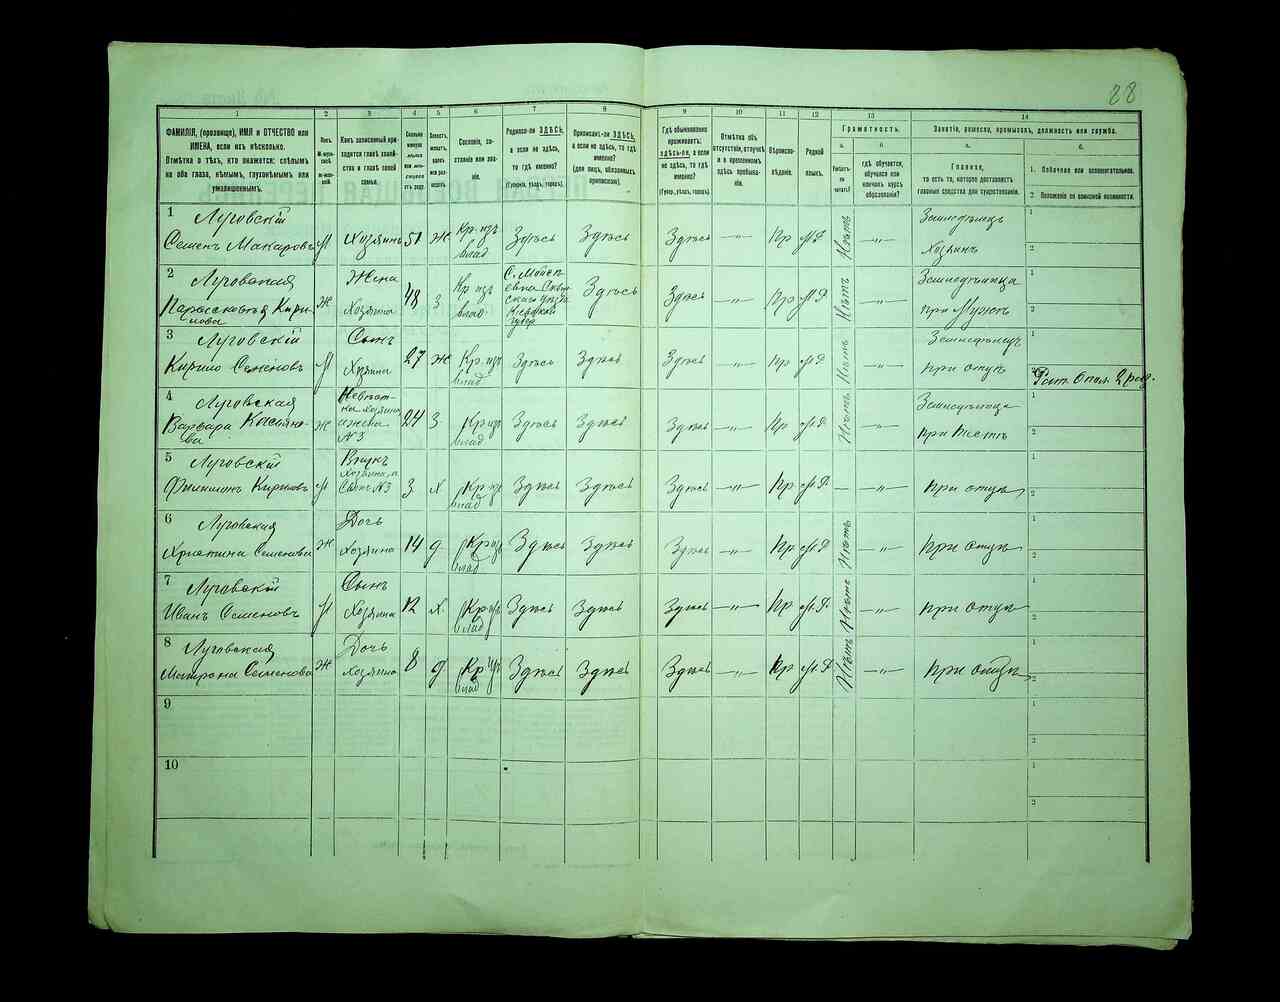 28
1 2 3 4 5 6 7 8 9 10 11 12 13 14
ФАМИЛІЯ, (прозвище), ИМЯ и ОТЧЕСТВО или ИМЕНА, если ихъ нѣсколько.
Отмѣтка о тѣхъ, кто окажется: слѣпымъ на оба глаза, нѣмымъ, глухонѣмымъ или умалишеннымъ.
Полъ.
М-муж-
ской.
Ж-жен-
ской.
Какъ записанный при-
ходится главѣ хозяй-
ства и главѣ своей
семьи.
Сколько
минуло
лѣтъ
или мѣся-
цевъ
отъ роду.
Холостъ,
женатъ,
вдовъ
или раз-
веденъ.
Сословіе, со-
стояніе или зва-
ніе.
Родился-ли ЗДѢСЬ,
а если не здѣсь,
то гдѣ именно?
(Губернія, уѣздъ, городъ).
Приписанъ-ли ЗДѢСЬ,
а если не здѣсь, то гдѣ
именно?
(для лицъ, обязанныхъ
припискою).
Гдѣ обыкновенно
проживаетъ:
здѣсь-ли, а если
не здѣсь, то гдѣ
именно?
(Губер., уѣздъ, городъ).
Отмѣтка объ
отсутствіи, отлучкѣ
и о временномъ
здѣсь пребыва-
ніи.
Вѣроиспо-
вѣданіе.
Родной
языкъ.
Грамотность.
а.
Умѣетъ-
ли
читать?
б.
гдѣ обучается,
обучался или
кончилъ курсъ
образованія?
Занятіе, ремесло, промыселъ, должность или служба.
а.
Главное,
то есть то, которое доставляетъ
главныя средства для существованія.
б.
1. Побочное или вспомогательное.
2. Положеніе по воинской повинности.
1 Луговскій
Семенъ Макаровъ М Хозяинъ 51 Ж Кр. изъ влад Здѣсь Здѣсь Здѣсь —"— Пр М.Р Нѣтъ —"— Земледѣлецъ
Хозяинъ 1 2
2 Луговская
Парасковья Кири-
лова Ж Жена
Хозяина 48 З Кр изъ
влад. Здѣсь Здѣсь —"— Пр М.Р Нѣтъ —"— Земледѣлица
при Мужѣ 1 2
3 Луговскій
Кирило Семеновъ М Сынъ
Хозяина 27 Ж Кр. изъ
влад Здѣсь Здѣсь Здѣсь —"— Пр М.Р Нѣтъ —"— Земледѣлецъ
при отцѣ 1 2 Рат. Опол. 2 раз.
4 Луговская
Варвара Ж Невѣст-
ка хозяина
и жена
№ 3 24 З Кр изъ
влад Здѣсь Здѣсь Здѣсь —"— Пр М.Р Нѣтъ —"— Земледѣлица
при тестѣ 1 2
5 Луговскій
Филимонъ Кириловъ М Внукъ
хозяина, и
Сынъ № 3 3 Х Кр изъ
влад Здѣсь Здѣсь Здѣсь —"— Пр М.Р — —"— при отцѣ 1 2
6 Луговская
Христина Семенова Ж Дочь
Хозяина 14 Д Кр изъ
влад Здѣсь Здѣсь Здѣсь —"— Пр М.Р Нѣтъ —"— при отцѣ 1 2
7 Луговскій
Иванъ Семеновъ М Сынъ
Хозяина 12 Х. Кр изъ
влад Здѣсь Здѣсь Здѣсь —"— Пр М.Р Нѣтъ —"— при отцѣ 1 2
8 Луговская
Матрона Семенова Ж Дочь
Хозяина 8 Д Кр изъ
влад Здѣсь Здѣсь Здѣсь —"— Кр М.Р Нѣтъ —"— при отцѣ 1 2
9 1 2
10 1 2